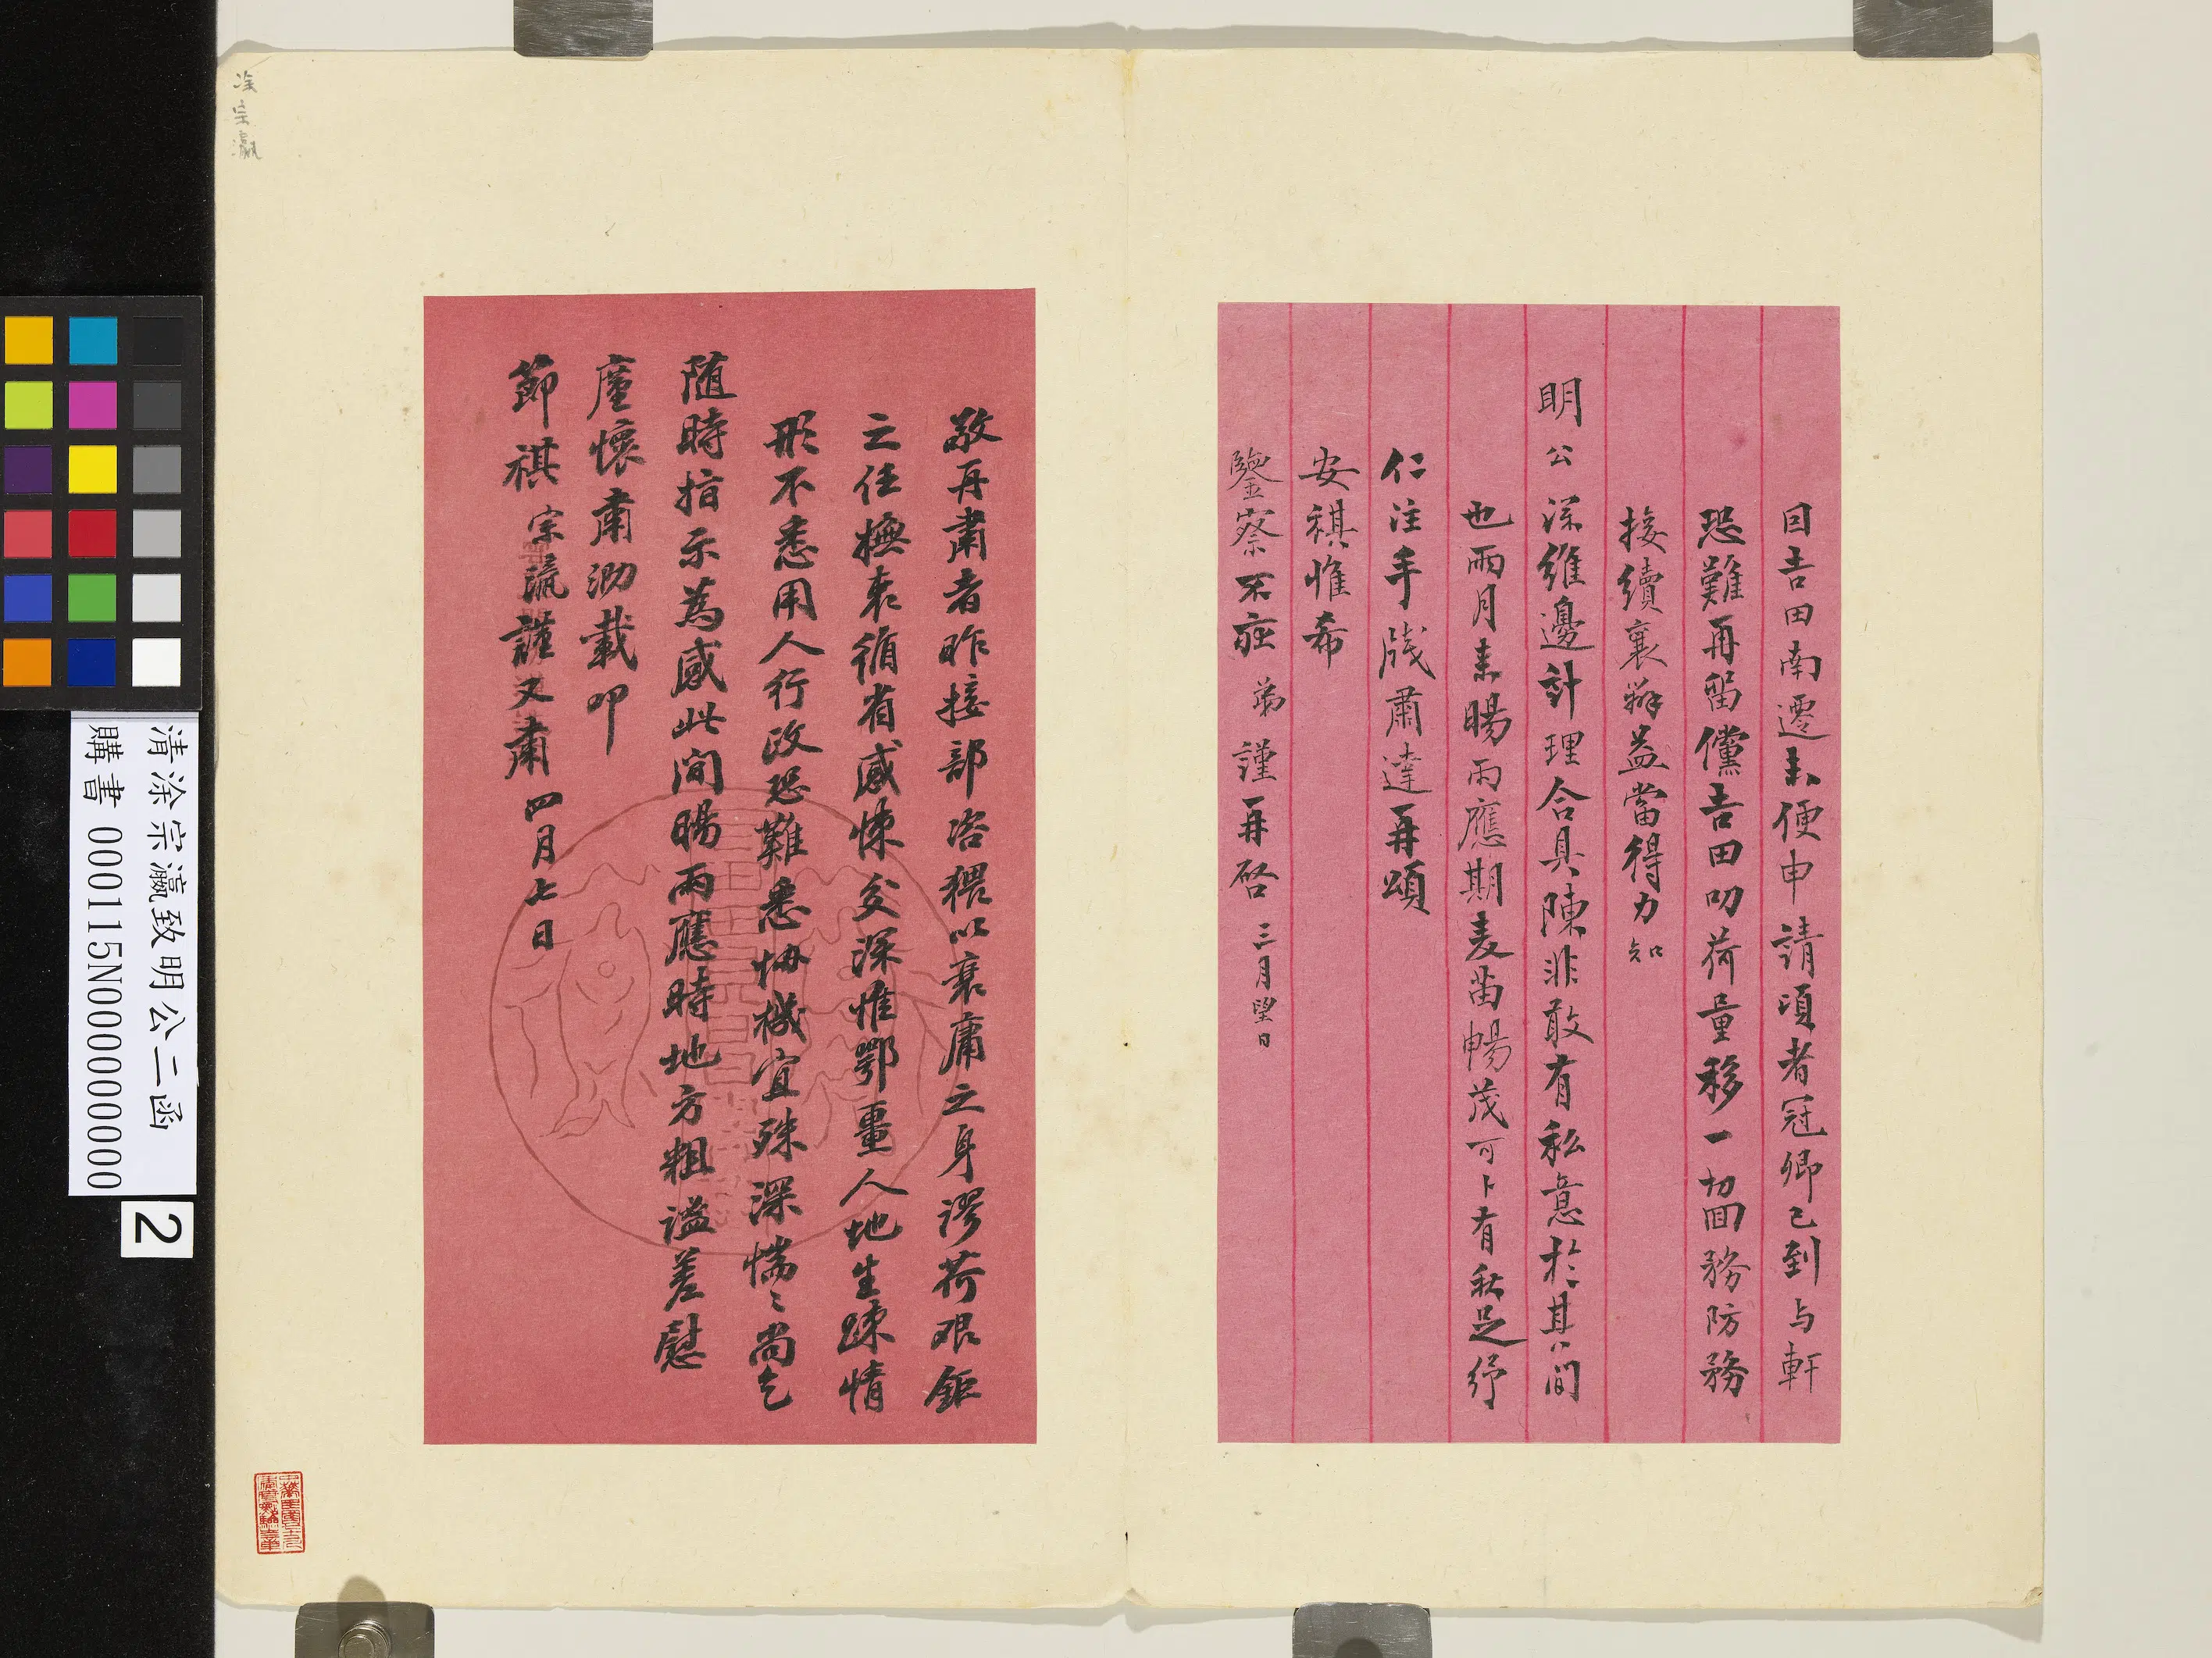 目吉田南遷未便申請頃者冠卿已到与軒
恐難再留儻吉田叨荷量移一切回務防務
接續襄辦益當得力知
明公深維邊計理合具陳非敢有私意於其間
也兩月來暘雨應期麦苗暢茂可卜有秋足紓
仁注手牋肅達再頌
安祺惟希
鑒察不莊 弟 謹再啓 三月望日
敬再肅者昨接部咨猥以衰庸之身謬荷艰鉅
之任撫衷循省感悚交深惟鄂畺人地生疎情
形不悉用人行政恐難悉恊機宜殊深惴〻尚乞
随時指示為感此间暘雨應時地方粗谧差慰
廑懷肅泐載叩
節祺 宗瀛謹又肅 四月七日
涂宗瀛
清涂宗瀛致明公二函
購書 000115N000000000
2